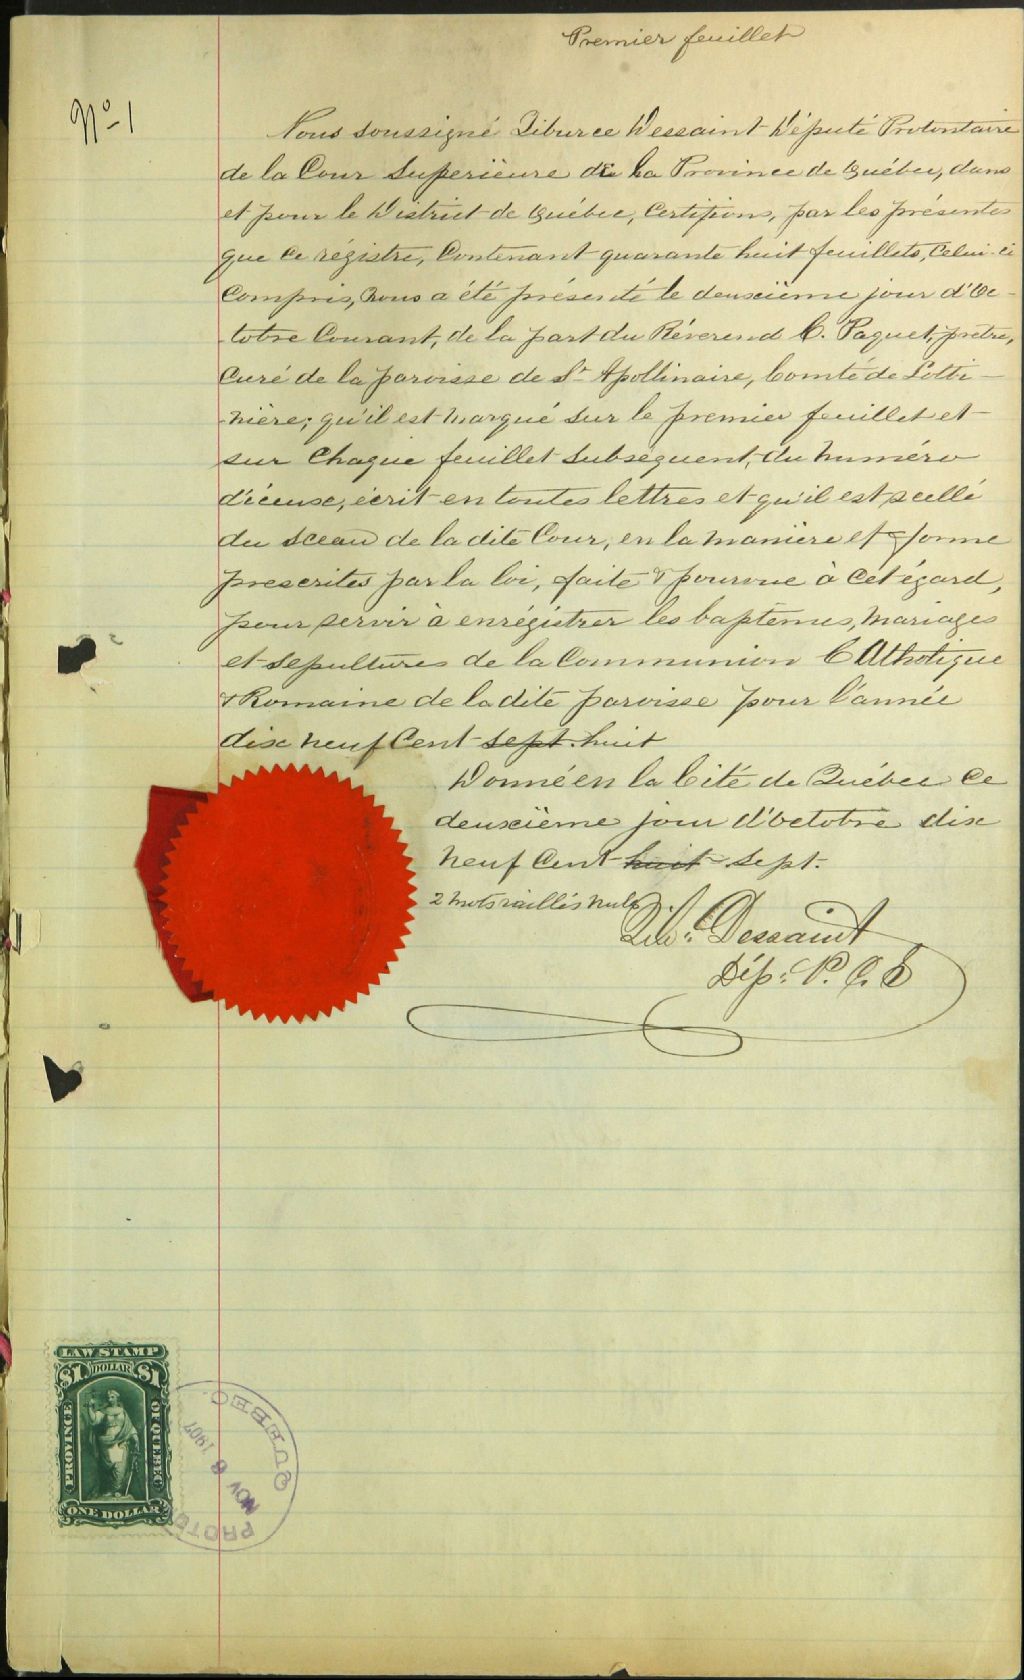 Premier feuillet
No 1
Nous soussigné Tiburce Dessaint Député Protonotaire
de la Cour Superïeure de la Province de Québec, dans
et pour le District de Québec, Certifions, par les présentes
que ce régistre, Contenant quarante huit feuillets, Celui-ci
Compris, Nous a été présenté le deuxième jour d'Oc-
tobre Courant, de la part du Révérend C. Paquet, prêtre,
Curé de la paroisse de St Apollinaire, Comté de Lotbi-
-nière; qu'il est marqué sur le premier feuillet et
sur Chaque feuillet Subséquent, du numéro
d'iceux, écrit en toutes lettres et qu'il est scellé
du sceau de la dite Cour, en la manière et forme
prescrites par la loi, faite & pourvue à Cet égard,
pour servir à enrégistrer les baptêmes, mariages
et sépultures de la Communion CAtholique
& Romaine de la dite paroisse pour l'année
dix neuf Cent sept huit
Donné en la Cité de Québec Ce
deuxième jour d'Octobre dix
neuf Cent huit sept.
2 mots raillés nuls
Tib: Dessaint
Dép: P. C. S
LAW STAMP
$1 DOLLAR $1
PROVINCE OF QUEBEC
ONE DOLLAR
QUEBEC
NOV 6 1907
PROTO